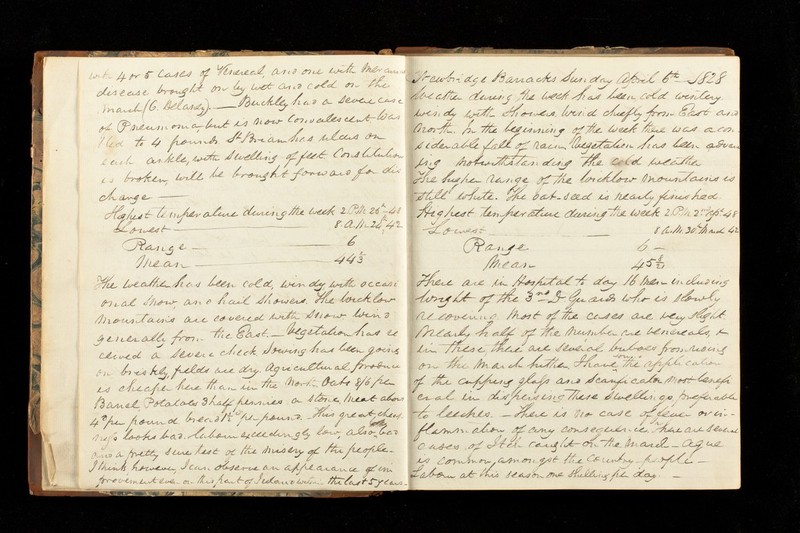 with 4 or 5 cases of Venereal, and one with
disease brought on by wet and cold on the
march (C. Delardy). — Buckley has a severe case
of Pneumonia but is now convalescent Was
bled to 4 pounds St. Brian has ulcers on
each ankle, with swelling of feet Constitution
is broken, will be brought forward for dis
charge —
Highest temperature during the week 2 P.M. 25th 48
Lowest — 8 A.M. 24th 42
Range — 6
Mean — 44
The weather has been cold, windy with occasi
onal snow and hail showers. The Wicklow
mountains are covered with snow Wind
generally from the East. — Vegetation has re
ceived a severe check Sowing has been going
on briskly, fields are dry Agricultural produce
is cheaper here than in the North Oats 8/6 per
Barrel Potatoes 3 half pennies a stone Meat about
4d per pound bread 1½d per pound. This great cheap
ness looks bad. Labour exceedingly low, also bad
and a pretty sure test of the misery of the people.
I think however, I can observe an appearance of im
provement even on this part of Ireland within the last 5 years.
Newbridge Barracks Sunday April 6th — 1828
Weather during the week has been cold wintery
windy with showers, Wind chiefly from East and
North. In the beginning of the week there was a con
siderable fall of rain, Vegetation has been advan
cing notwithstanding the cold weather
The higher range of the Wicklow mountains is
still white. The oat seed is nearly finished.
Highest temperature during the week 2 P.M. 2nd Apl. 48
Lowest — 8 A.M. 30th March 42
Range 6 —
Mean 45
There are in Hospital to day 16 men including
Wright of the 3rd D. Guards who is slowly
recovering. Most of the cases are very slight.
Nearly half of the number are venereals, &
in these, there are several buboes from
on the March hither. I have the application
of the cupping glass and scarificator most benefi
cial in dispersing these swellings, preferable
to leeches. — There is no case of fever or in-
flammation of any consequence. There are several
cases of Itch caught on the march — Ague
is common amongst the country people —
Labour at this season one shilling per day. —